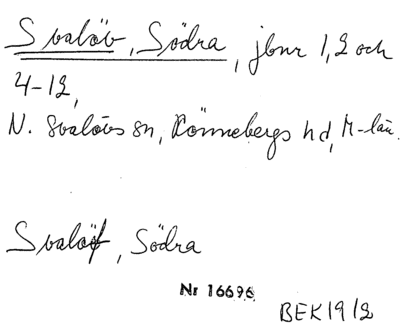 Svalöv, Södra, jbnr 1, 2 och
4-12,
N. Svalövs sn, Rönnebergs hd, M-län.
Svalöf, Södra
Nr 16696
BEK 19/2